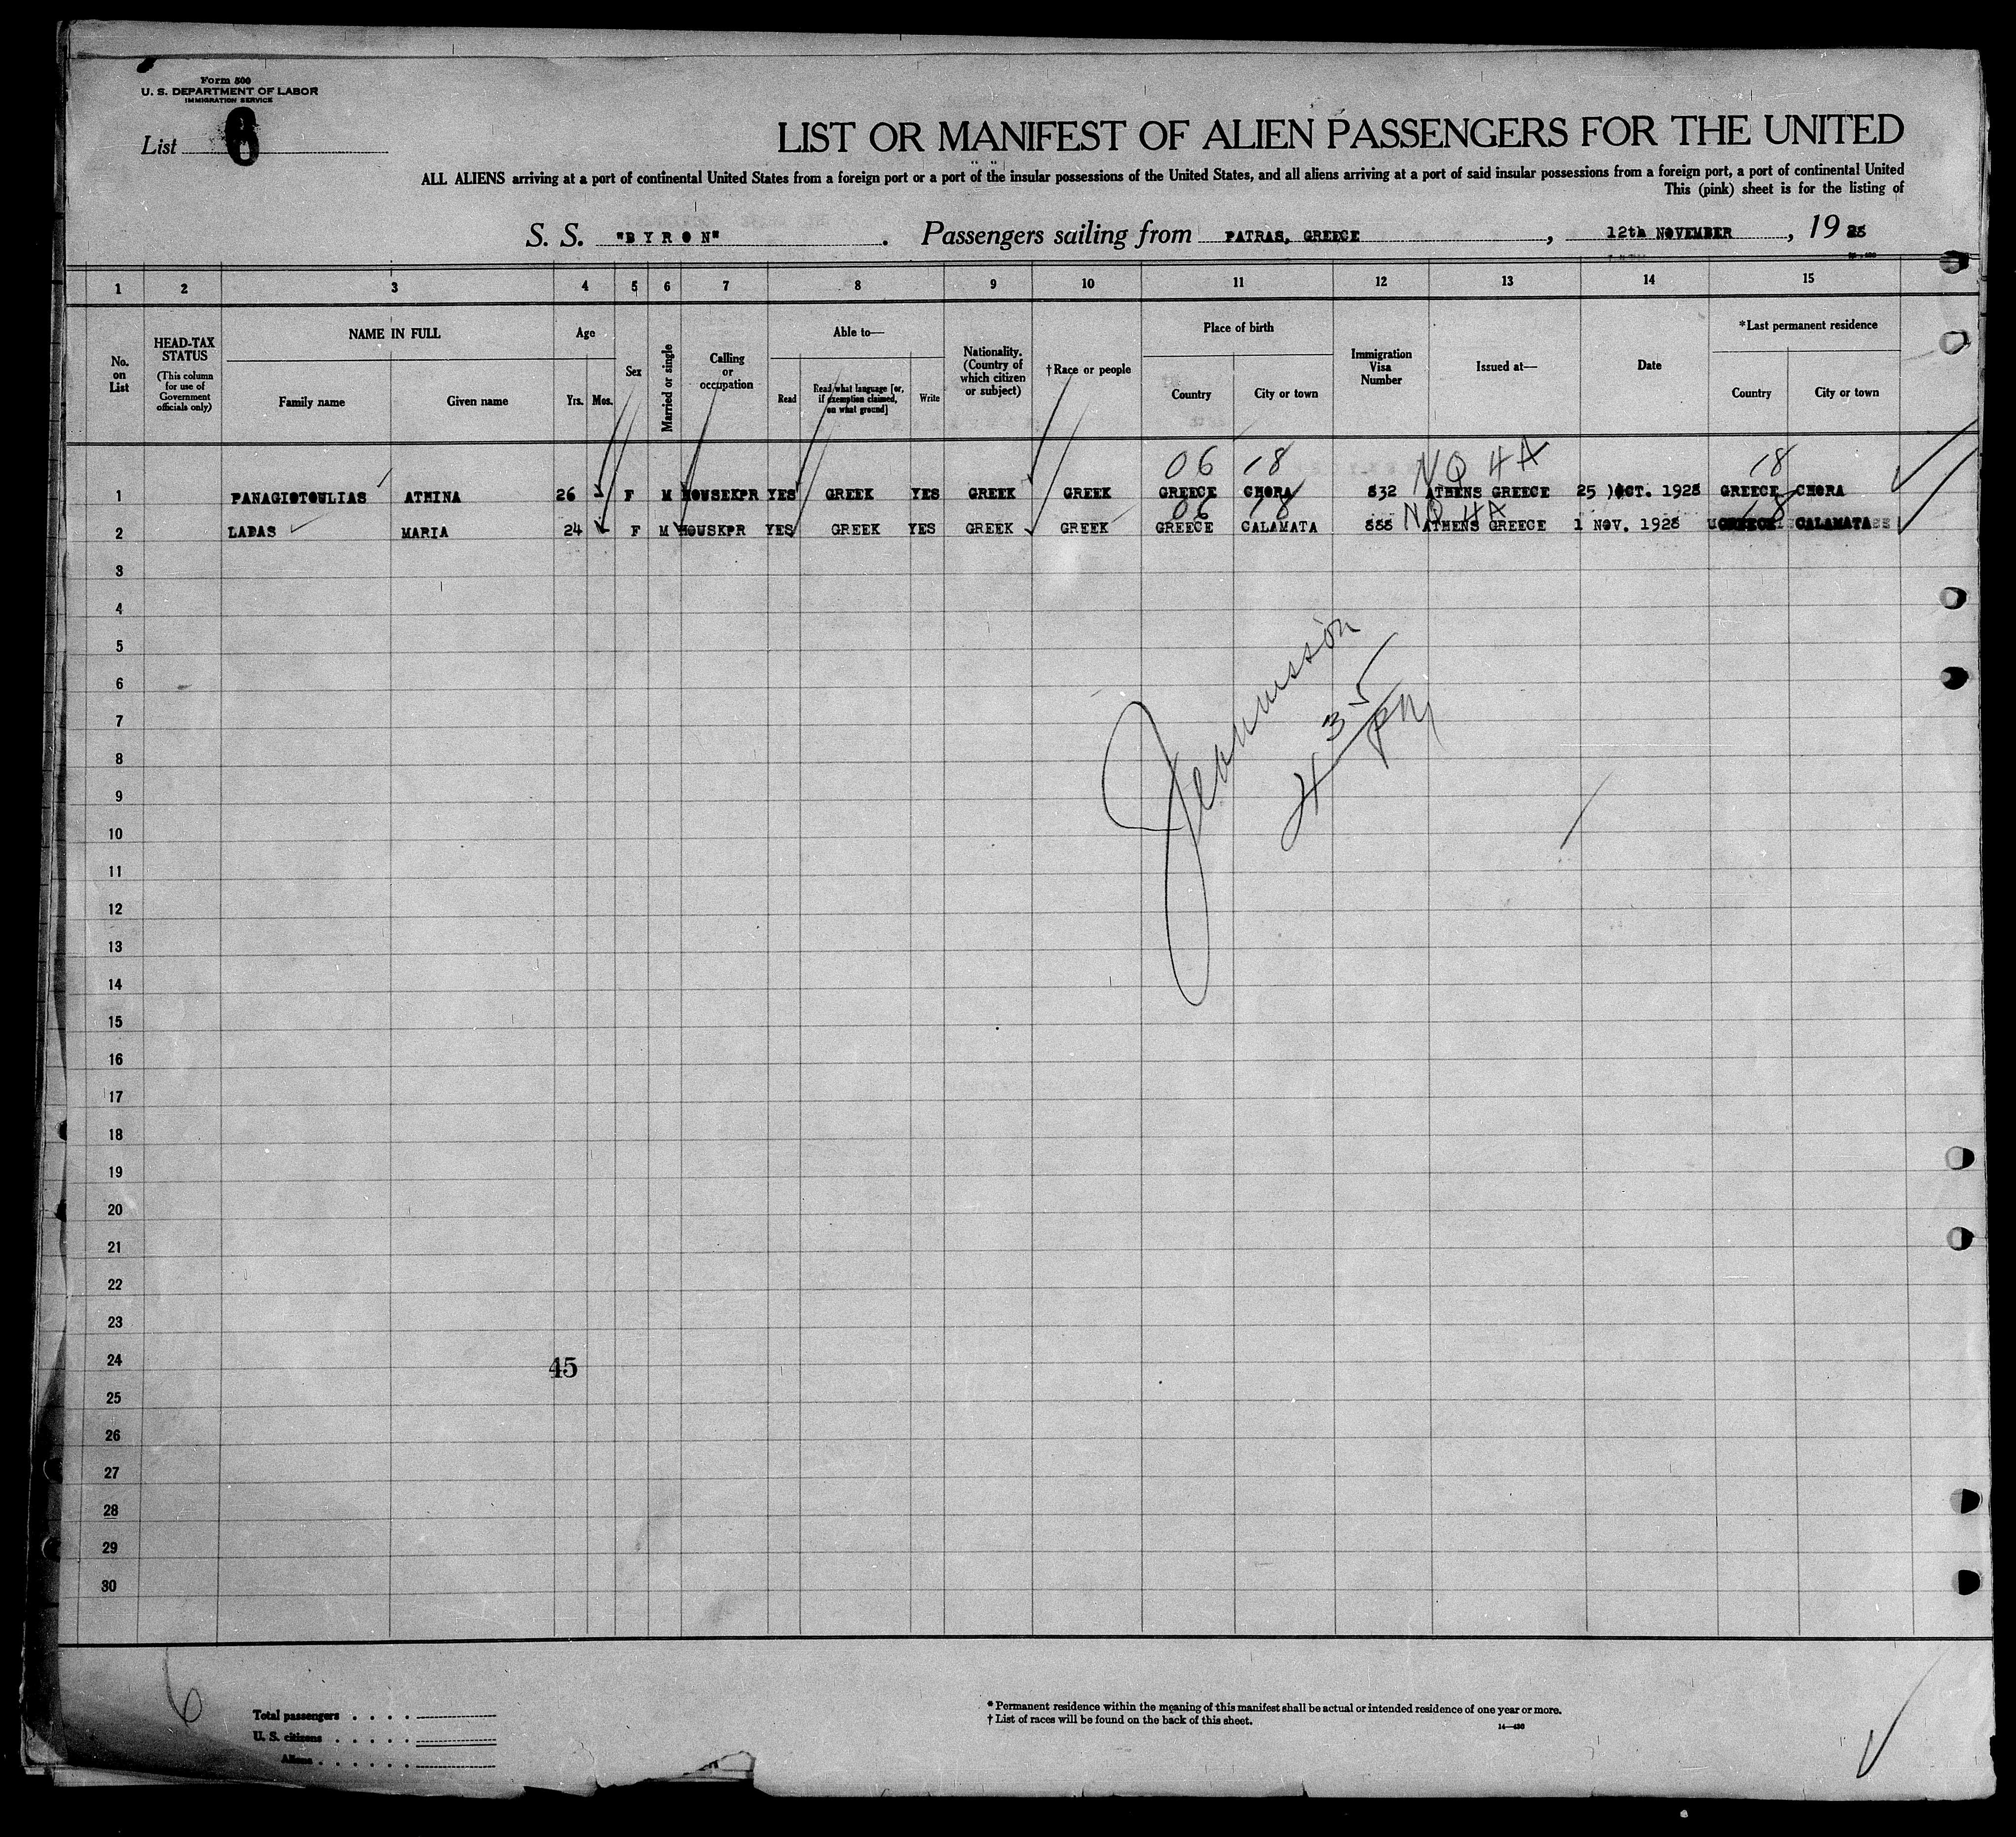 Form 500
U. S. DEPARTMENT OF LABOR
IMMIGRATION SERVICE
List 6
LIST OR MANIFEST OF ALIEN PASSENGERS FOR THE UNITED
ALL ALIENS arriving at a port of continental United States from a foreign port or a port of the insular possessions of the United States, and all aliens arriving at a port of said insular possessions from a foreign port, a port of continental United
This (pink) sheet is for the listing of
S. S. "BYRON" . Passengers sailing from PATRAS, GREECE , 12th NOVEMBER , 19 28
1 2 3 4 5 6 7 8 9 10 11 12 13 14 15
No. on List
HEAD-TAX STATUS (This column for use of Government officials only)
NAME IN FULL
Family name Given name
Age
Yrs. Mos.
Sex
Married or single
Calling or occupation
Able to—
Read Read what language [or, if exemption claimed, on what ground] Write
Nationality. (Country of which citizen or subject)
†Race or people
Place of birth
Country City or town
Immigration Visa Number
Issued at—
Date
*Last permanent residence
Country City or town
06 18 NQ 4A 18
1 PANAGIOTOULIAS ATHINA 26 F M HOUSEKPR YES GREEK YES GREEK GREEK GREECE CHORA 832 ATHENS GREECE 25 OCT. 1928 GREECE CHORA
06 18 NQ 4A 18
2 LADAS MARIA 24 F M HOUSKPR YES GREEK YES GREEK GREEK GREECE CALAMATA 888 ATHENS GREECE 1 NOV. 1928 GREECE CALAMATA
3
4
5
6
7
8
9
10
11
12
13
14
15
16
17
18
19
20
21
22
23
24
45
25
26
27
28
29
30
6
Total passengers
U. S. citizens
Aliens
* Permanent residence within the meaning of this manifest shall be actual or intended residence of one year or more.
† List of races will be found on the back of this sheet.
14—430